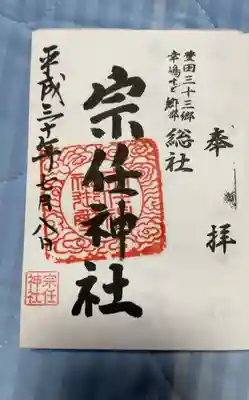 奉拝
豊田三十三郷
総社
宗任神社
平成三十年七月八日
宗任
神社